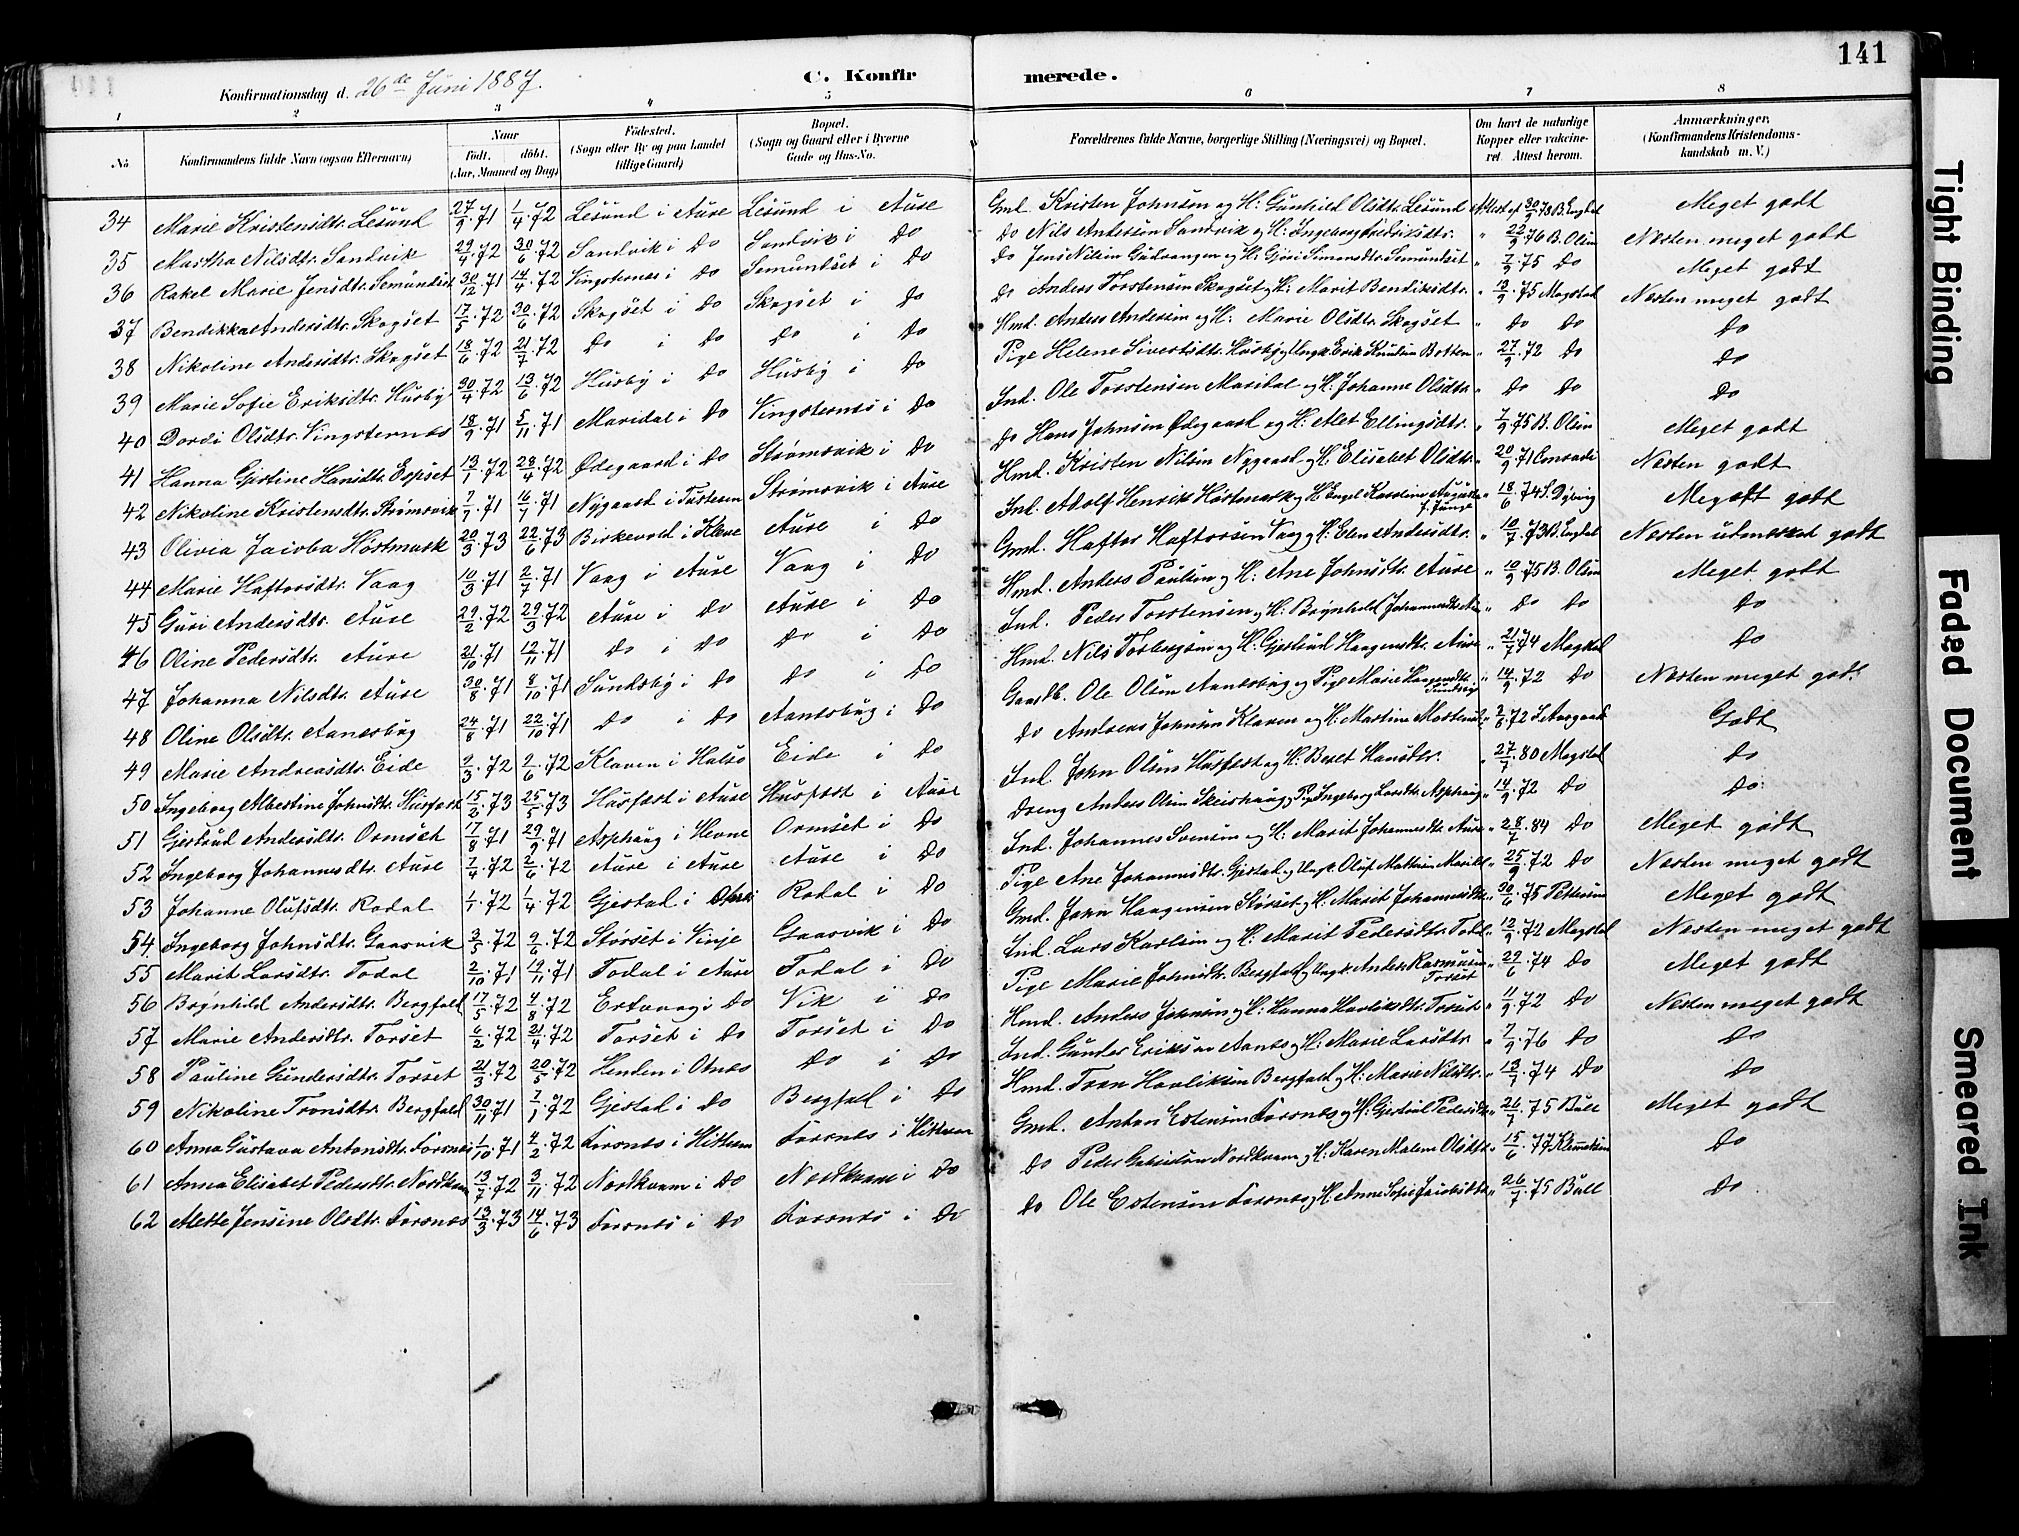 141
Konfirmationsdag d. 26de Juni 1887.
C. Konfirmerede.
1 2 3 4 5 6 7 8
No
Konfirmandens fulde Navn (ogsaa Efternavn)
Naar født. døbt. (Aar, Maaned og Dag)
Fødested. (Sogn eller By og paa Landet tillige Gaard)
Bopæl. (Sogn og Gaard eller i Byerne Gade og Hus-No.
Forældrenes fulde Navne, borgerlige Stilling (Næringsvei) og Bopæl.
Om havt de naturlige Kopper eller vakcineret Attest herom.
Anmærkninger. (Konfirmandens Kristendomskundskab m. V.)
34 Marie Kristensdtr. Lesund 27/9.71 1/4.72 Lesund i Aure Lesund i Aure Gmd. Kristen Johnsen og H: Gunhild Olsdtr. Lesund Attest af 30/9.73 B. Engdal Meget godt
35 Martha Nilsdtr. Sandvik 29/4.72 30/6.72 Sandvik i Do Sandvik i Do Do Nils Andersen Sandvik og H: Ingeborg Fredriksdtr. " 22/9.76 B. Olsen Næsten meget godt
36 Rakel Marie Jensdtr. Semundset 30/12.71 14/4.72 Vingsternes i Do Semundset i Do Do Jens Nilsen og H: Gjøri Simonsdtr. Semundset " 7/9.75 Do Meget godt
37 Bendikka Andersdtr. Skogset 17/5.72 30/6.72 Skogset i Do Skogset i Do Do Anders Torstensen Skogset og H: Marit Bendiksdtr. " 13/9.75 Mogstad Næsten meget godt
38 Nikoline Andersdtr. Skogset 18/6.72 21/7.72 Do i Do Do i Do Hmd. Anders Andersen og H: Marie Olsdtr. Skogset " Do Do Do
39 Marie Sofie Eriksdtr. Husby 30/4.72 13/6.72 Husby i Do Husby i Do Pige Helene Sivertsdtr. Husby og Ungk. Erik Knutsen Botten " 27/9.72 Do Do
40 Dordi Olsdtr. Vingsternes 18/9.71 5/11.71 Maridal i Do Vingsternes i Do Ind. Ole Torstensen Maridal og H: Johanne Olsdtr. " Do Do Do
41 Hanna Gjertine Hansdtr. Espset 13/1.72 28/4.72 Ødegaard i Do Strømsvik i Do Do Hans Johnsen Ødegaard og H: Alet Ellingsdtr. " 7/9.75 B. Olsen Meget godt
42 Nikoline Kristensdtr. Strømsvik 7/7.71 16/7.71 Nygaard i Tusteren Strømsvik i Aure Hmd. Kristen Nilsen Nygaard og H: Elisabet Olsdtr. " 20/9.71 Conradi Næsten godt
43 Olivia Jacoba Høstmark 20/3.73 22/6.73 Birkevold i Kleve Aure i Do Ind. Adolf Henrik Høstmark og H: Engel Karoline Augusta f. Junge " 18/6.74 S. Dybing Meget godt
44 Marie Haftorsdtr. Vaag 10/3.71 2/7.71 Vaag i Aure Vaag i Do Gmd. Haftor Haftorsen Vaag og H: Elen Andersdtr. " 10/7.73 B. Engdal Næsten udmerket godt
45 Guri Andersdtr. Aure 29/2.72 29/3.72 Aure i Do Aure i Do Hmd. Anders Paulsen og H: Ane Johnsdtr. Aure " 10/9.75 B. Olsen Meget godt
46 Oline Pedersdtr. Aure 21/10.71 12/11.71 Do i Do Do i Do Ind. Peder Torstensen og H: Brynhild Johannesdtr. " Do Do Do
47 Johanna Nilsdtr. Aure 30/8.71 8/10.71 Sundsby i Do Do i Do Hmd. Nils Torbergsen og H: Gjertrud Haagensdtr. Aure " 21/7.74 Mogstad Do
48 Oline Olsdtr. Aanesbug 24/8.71 22/10.71 Do i Do Aanesbug i Do Gaardb. Ole Olsen Aanesbug og Pige Marie Haagensdtr. Sundsby " 14/9.72 Do Næsten meget godt
49 Marie Andreasdtr. Eide 2/3.72 2/6.72 Klaven i Halse Eide i Do Do Andreas Johnsen Klaven og H: Martine Mortensd. " 2/8.72 S. Aasgaard Godt
50 Ingeborg Albertine Johnsdtr. Husfæst 15/2.73 25/5.73 Husfæst i Aure Husfæst i Aure Ind. John Olsen Husfæst og H: Beret Hansdtr. " 27/7.80 Mogstad Do
51 Gjertrud Andersdtr. Ormset 17/8.71 29/9.71 Asphaug i Hevne Ormset i Do Dreng Anders Olsen Skeishaug og Pige Ingeborg Larsdtr. Asphaug " 14/9.72 Do Do.
52 Ingeborg Johannesdtr. Aure 7/4.72 2/6.72 Aure i Aure Aure i Do Ind. Johannes Svensen og H: Marit Johannesdtr. Aure " 28/7.84 Do Meget godt
53 Johanne Olufsdtr. Rodal 1/1.72 1/4.72 Gjestad i Rodal i Do Pige Ane Johannesdtr. Gjestad og Ungk. Oluf Mathisen " 25/9.72 Do Næsten meget godt
54. Ingeborg Johnsdtr. Gaasvik 3/5.72 9/6.72 Størset i Vinje Gaasvik i Do Gmd. John Haagensen Størset og H: Marit Johannesdtr. " 30/6.75 Pettersen Meget godt
55 Marit Larsdtr. Todal 2/10.71 19/11.71 Todal i Aure Todal i Do Ind. Lars Karlsen og H: Marit Pedersdtr. Todal " 12/9.72 Mogstad Næsten meget godt
56 Brynhild Andersdtr. Bergfald 17/5.72 4/8.72 Ertvaag i Do Vik i Do Pige Marie Johnsdtr. Bergfald og Ungk. Anders Rasmussen Torset " 29/6.74 Do Meget godt
57 Marie Andersdtr. Torset 6/2.72 21/4.72 Torset i Do Torset i Do Hmd. Anders Johnsen og H: Hanna Havliksdtr. Torset " 11/9.72 Do Næsten meget godt
58 Pauline Gundersdtr. Torset 21/3.72 20/5.72 Henden i Otnes Do i Do Ind. Gunder Eriksen Aanes og H: Marie Larsdtr. " 7/9.76 Do Do
59 Nikoline Tronsdtr. Bergfald 30/11.71 7/1.72 Gjestad i Do Bergfald i Do Hmd. Tron Havliksen Bergfald og H: Marie Nilsdtr. " 13/7.74 Do Do
60 Anna Gustava Antonsdtr. Forsnes 1/10.71 4/2.72 Forsnes i Hitteren Forsnes i Hitteren Gmd. Anton Estensen Forsnes og H: Gjertrud Pedersdtr. " 26/7.75 Bull Meget godt
61 Anna Elisabet Pedersdtr. Nordkvam 13/7.72 3/11.72 Nordkvam i Do Nordkvam i Do Do Peder Gabrielsen Nordkvam og H: Karen Malene Olsdtr. " 15/6.77 Klemetsen Do
62 Alette Jensine Olsdtr. Forsnes 13/3.73 14/6.73 Forsnes i Do Forsnes i Do Do Ole Estensen Forsnes og H: Anne Sofie Jacobsdtr. " 26/7.75 Bull Do
Tight Binding
Faded Document
Smeared Ink